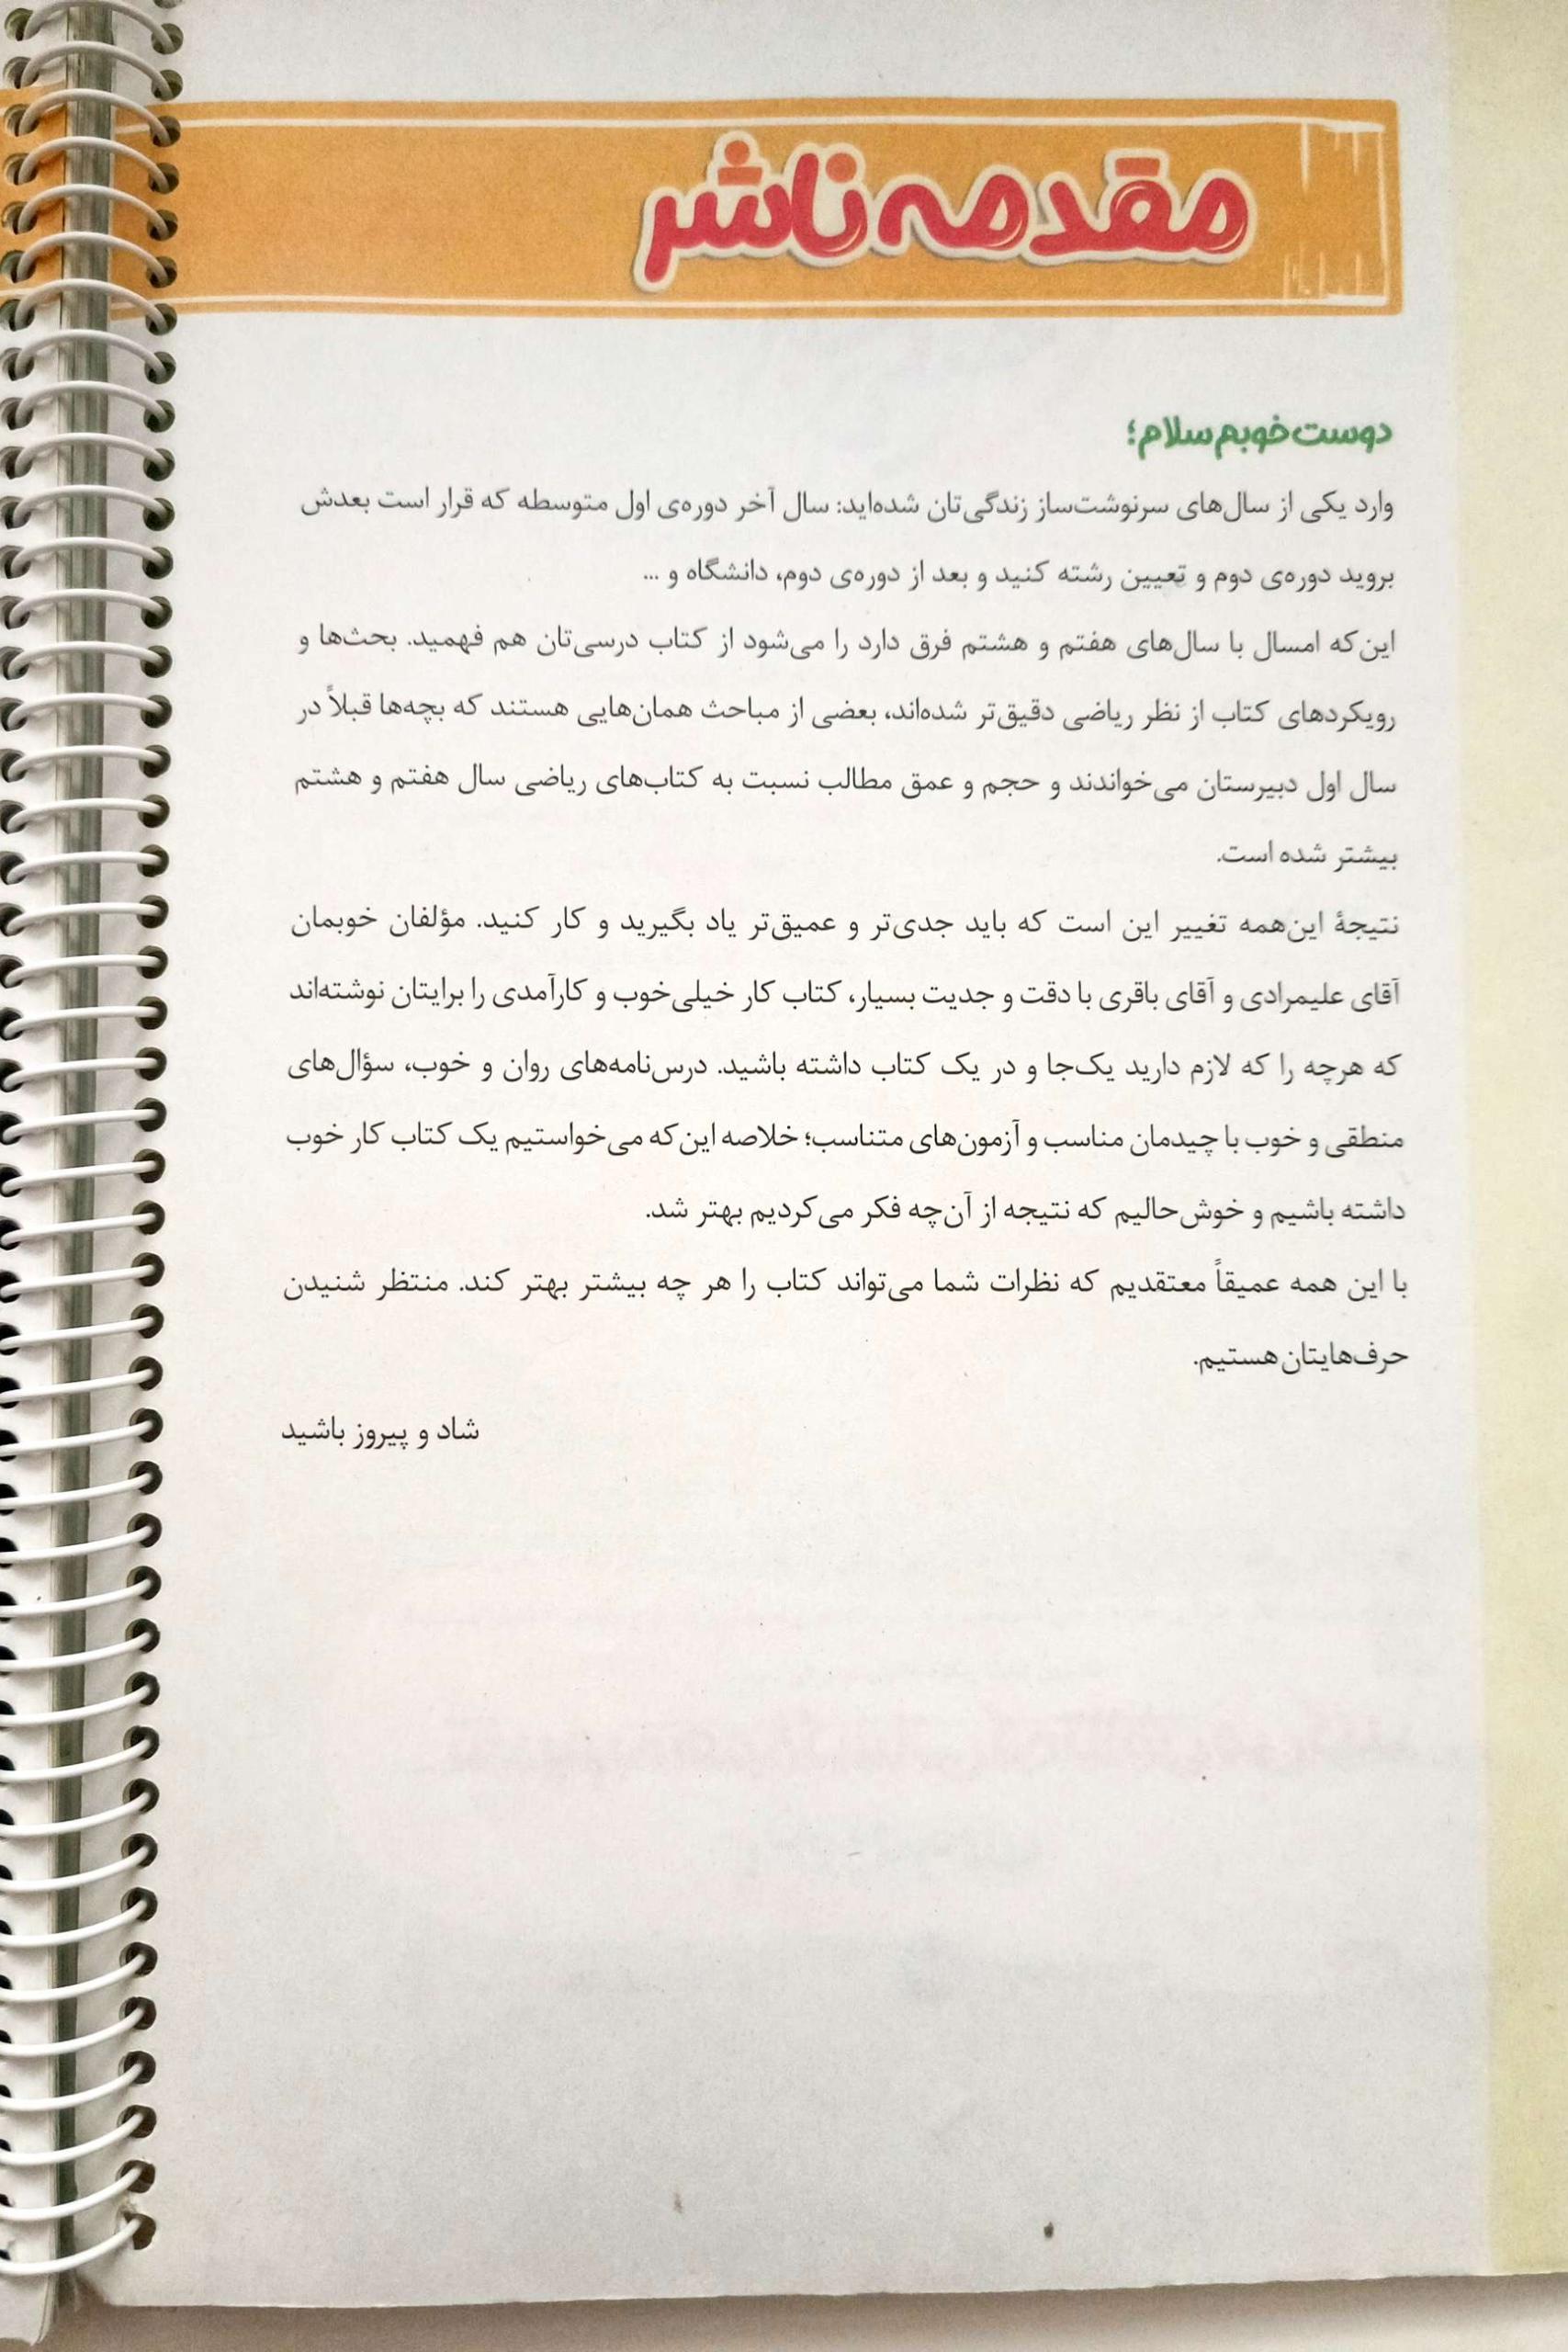 مقدمه ناشر
دوست خوبم سلام؛
وارد یکی از سال‌های سرنوشت‌ساز زندگی‌تان شده‌اید: سال آخر دوره‌ی اول متوسطه که قرار است بعدش
بروید دوره‌ی دوم و تعیین رشته کنید و بعد از دوره‌ی دوم، دانشگاه و ...
این‌که امسال با سال‌های هفتم و هشتم فرق دارد را می‌شود از کتاب درسی‌تان هم فهمید. بحث‌ها و
رویکردهای کتاب از نظر ریاضی دقیق‌تر شده‌اند، بعضی از مباحث همان‌هایی هستند که بچه‌ها قبلاً در
سال اول دبیرستان می‌خواندند و حجم و عمق مطالب نسبت به کتاب‌های ریاضی سال هفتم و هشتم
بیشتر شده است.
نتیجهٔ این‌همه تغییر این است که باید جدی‌تر و عمیق‌تر یاد بگیرید و کار کنید. مؤلفان خوبمان
آقای علیمرادی و آقای باقری با دقت و جدیت بسیار، کتاب کار خیلی‌خوب و کارآمدی را برایتان نوشته‌اند
که هرچه را که لازم دارید یک‌جا و در یک کتاب داشته باشید. درس‌نامه‌های روان و خوب، سؤال‌های
منطقی و خوب با چیدمان مناسب و آزمون‌های متناسب؛ خلاصه این‌که می‌خواستیم یک کتاب کار خوب
داشته باشیم و خوش‌حالیم که نتیجه از آن‌چه فکر می‌کردیم بهتر شد.
با این همه عمیقاً معتقدیم که نظرات شما می‌تواند کتاب را هر چه بیشتر بهتر کند. منتظر شنیدن
حرف‌هایتان هستیم.
شاد و پیروز باشید